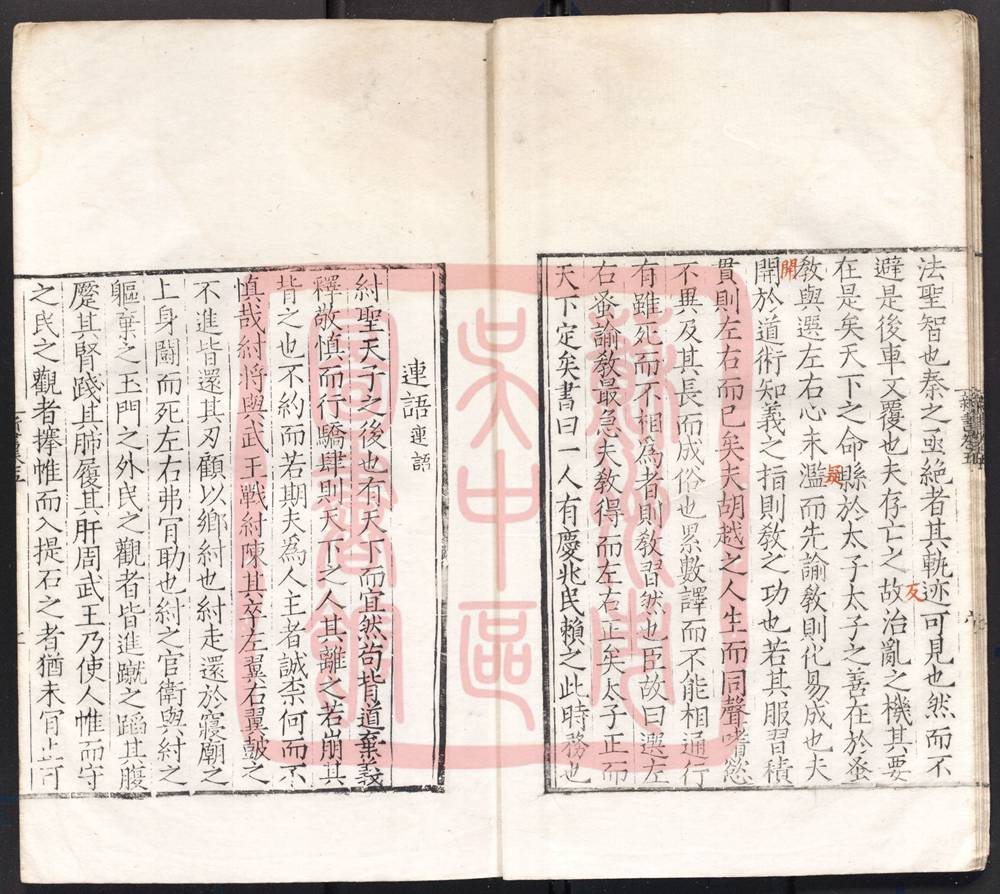 法聖智也秦之亟絕者其軌迹可見也然而不
避是後車又覆也夫存亡之故治亂之機其要
在是矣天下之命縣於太子太子之善在於蚤
敎與選左右心未濫而先諭敎則化易成也夫
開於道術知義之指則敎之功也若其服習積
貫則左右而已矣夫胡越之人生而同聲嗜慾
不異及其長而成俗也累數譯而不能相通行
有雖死而不相爲者則敎習然也臣故曰選左
右蚤諭敎最急夫敎得而左右正矣太子正而
天下定矣書曰一人有慶兆民賴之此時務也
友
疑
開
連語連語
紂聖天子之後也有天下而宜然苟背道棄義
釋敬慎而行驕肆則天下之人其離之若崩其
背之也不約而若期夫爲人主者誠柰何而不
慎哉紂將與武王戰紂陳其卒左翼右翼鼓之
不進皆還其刃顧以鄉紂也紂走還於寢廟之
上身鬭而死左右弗肎助也紂之官衛與紂之
軀棄之玉門之外民之觀者皆進蹴之蹈其腹
蹷其腎踐其肺履其肝周武王乃使人帷而守
之民之觀者搴帷而入提石之者猶未肎止可
蘇州市吳中區圖書館